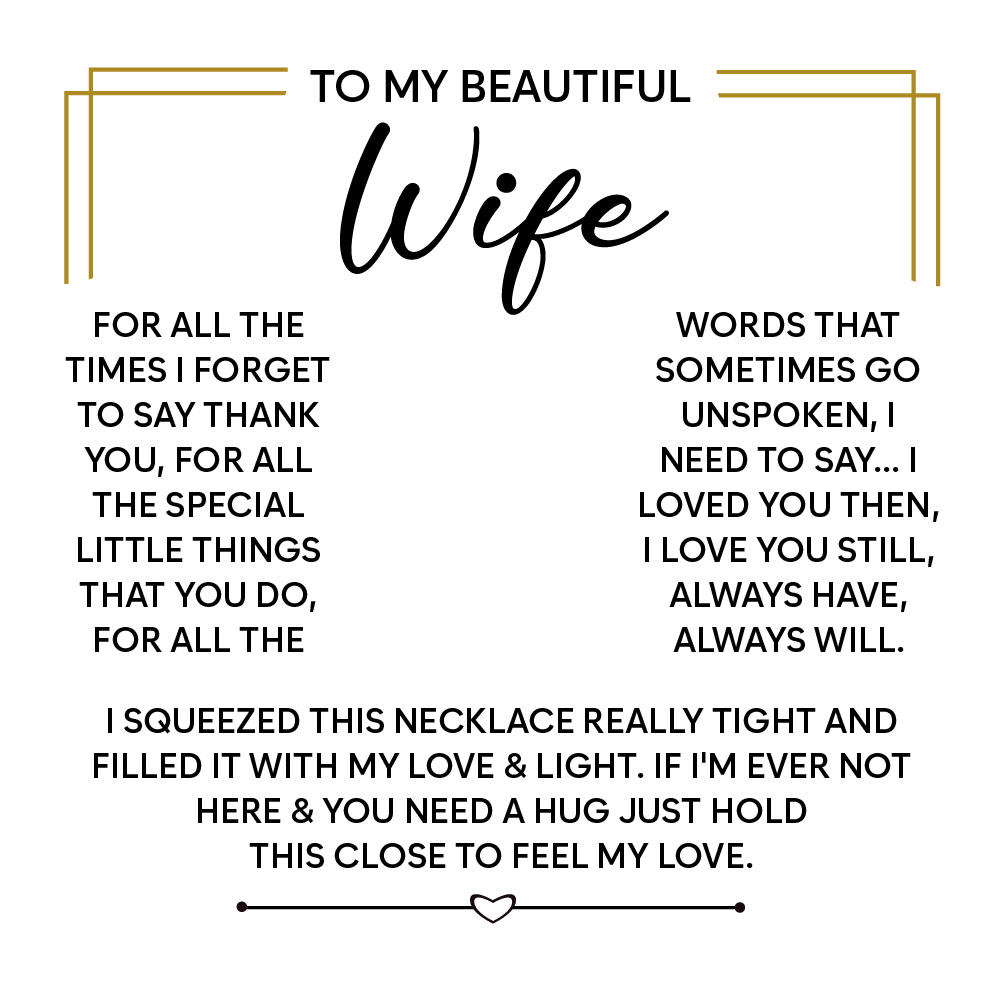 TO MY BEAUTIFUL
Wife
FOR ALL THE
TIMES I FORGET
TO SAY THANK
YOU, FOR ALL
THE SPECIAL
LITTLE THINGS
THAT YOU DO,
FOR ALL THE
WORDS THAT
SOMETIMES GO
UNSPOKEN, I
NEED TO SAY... I
LOVED YOU THEN,
I LOVE YOU STILL,
ALWAYS HAVE,
ALWAYS WILL.
I SQUEEZED THIS NECKLACE REALLY TIGHT AND
FILLED IT WITH MY LOVE & LIGHT. IF I'M EVER NOT
HERE & YOU NEED A HUG JUST HOLD
THIS CLOSE TO FEEL MY LOVE.